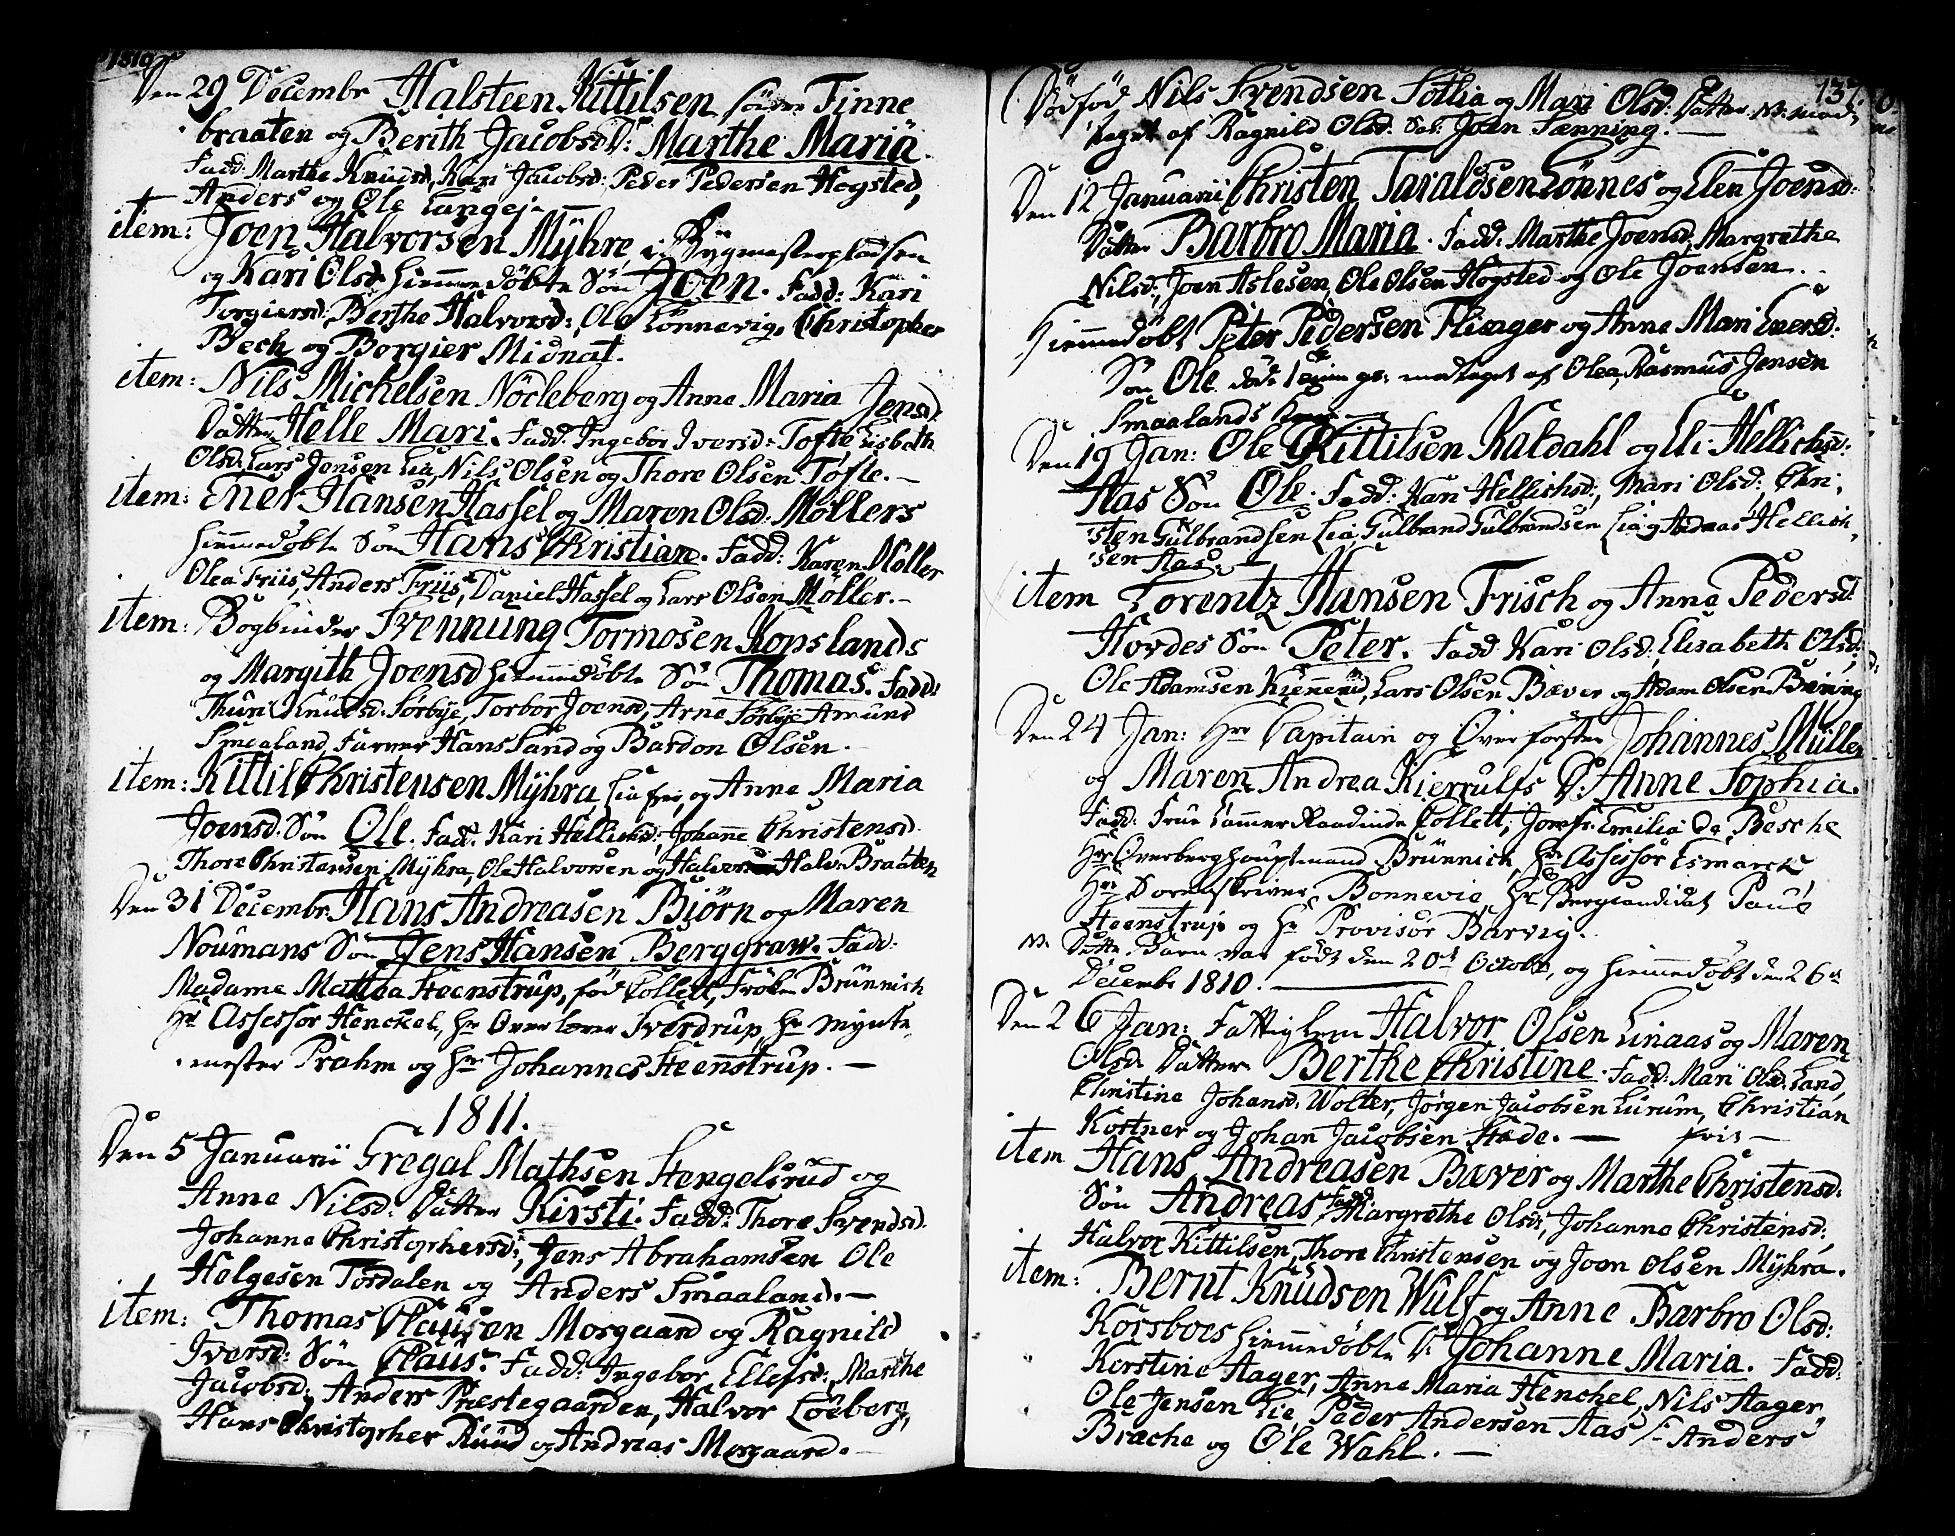 1810
Den 29 Decembr Halsteen Kittilsen søndre Finne
braaten og Berith Jacobsd D: Marthe Maria.
Fadd: Marthe Knudsd, Kari Jacobsd: Peder Pedersen Hogsted,
Anders og Ole Langej.
item: Joen Halvorsen Mÿhre, i Bygmesterpladsen
og Kari Olsd hiemmedøbte Søn Joen. Fadd: Kari
Torgiersd, Berthe Halvorsd:, Ole Lønnevig, Christopher
Bech og Borgier Midnat.
item: Nils Michelsen Nørleberg og Anne Maria Jensd
Datter Helle Mari. Fadd: Ingebor Iversd: Tofte Lisbeth
Olsd: Lars Jensen Lia, Nils Olsen og Thore Olsen Tofte.
item: Ener Hansen Hassel og Maren Olsd: Møllers
hiemmedøbte Søn Hans Christian. Fadd: Karen Møller
Olea Friis, Anders Friis, Daniel Hassel og Lars Olsen Møller.
item: Bogbinder Svennung Tormosen Kopslands
og Margith Joensd hiemmedøbte Søn Thomas. Fadd:
Thuri Knudsd: Sørbye, Torbor Joensd, Arne Sørbye Amund
Smealand, Farver Hans Sand og Bardon Olsen.
item: Kittil Christensen Mÿhra, og Anne Maria
Joensd: Søn Ole. Fadd: Kari Hellichsd: Johanne Christensd.
Thore Christensen Mÿhra, Ole Halvorsen og Halvor Halv: Braaten
Den 31 Decembr Hans Andreasen Biørn og Maren
Noumans Søn Jens Hansen Berggraw. Fadd:
Madame Mattea Steenstrup, fød Collett, Frøken Brünnich
Hr Assessor Henckel, Hr Overlærer Sverdrup, Hr Mynte
mester Prahm og Hr Johannes Steenstrup.
1811.
Den 5 Januarii Gregal Mathsen Stengelsrud og
Anne Nilsd: Datter Kirsti. Fadd: Thore Svendsd.
Johanne Christophersd:, Jens Abrahamsen Ole
Helgesen Tordalen og Anders Smaaland.
item: Thomas Clausen Morgaard og Ragnild
Iversd: Søn Claus. Fadd: Ingebor Ellefsd:, Marthe
Jacobsd:, Anders Præstegaarden, Halvor Løeberg,
Hans Christopher Ruud og Andreas Morgaard.
137.
Dødfød Nils Svendsen Sotlia og Mari Olsd: Datter NB. mod
taget af Ragnild Olsd. Joen Sænning.
Den 12 Januarii Christen Taraldsen Lønnes og Elen Joensd:
Datter Barbro Maria. Fadd: Marthe Joensd, Margrethe
Nilsd:, Joen Aslesen, Ole Olsen Hogsted og Ole Joensen.
Hiemmedøbt Peter Pedersen Flinger og Anne Mari Enersd:
Søn Ole modtaget af Olea, Rasmus Jensen
Smaalands
Den 19 Jan: Ole Kittilsen Kaldahl og Eli Hellichsd:
Aas Søn Ole. Fadd: Kari Hellichsd:, Mari Olsd:, Chri
sten Gulbrandsen Lia, Gulbrand Gulbrandsen Lia og Andreas Hellich
sen Aas.
item Lorentz Hansen Frisch og Anne Pedersd
Hordes Søn Peter. Fadd Kari Olsd:, Elisabeth Olsd:
Ole Adamsen Kiennerud, Lars Olsen Bæver og Adam Olsen Bening
Den 24 Jan: Hr Capitain og Overførster Johannes Müller
og Maren Andrea Kierrulfs D: Anne Sophia.
Fadd: Frue Cammer Raadinde Collett, Jomfr: Emilia De Besche
Hr Overberghauptmand Brünnich, Hr Assessor Esmarck
Hr Sorenskriver Bonnevie, Hr Bergcandidat Paul
Steenstrup og Hr Provisor Barvig.
NB. Dette Barn var født den 20de Octobr, og hiemmedøbt den 26de
Decembr 1810.
Den 26 Jan: Fattiglem Halvor Olsen Linaas og Maren
Olsd Datter Berthe Christine. Fadd: Mari Olsd: Sand,
Christine Johansd: Wolter, Jørgen Jacobsen Lurum, Christian
Kostner og Johan Jacobsen Stæde. fris
item Hans Andreasen Bæver og Marthe Christensd:
Søn Andreas Fadd: Margrethe Olsd:, Johanne Christensd:,
Halvor Kittilsen, Thore Christensen og Joen Olsen Mÿhra.
item: Bernt Knudsen Wulf og Anne Barbro Olsd:
Korsboes hiemmedøbte D: Johanne Maria. Fadd:
Kerstine Hager, Anne Maria Henckel, Nils Hager
Ole Jensen Lie, Peder Andersen Aas Anders
Brache og Ole Wahl.